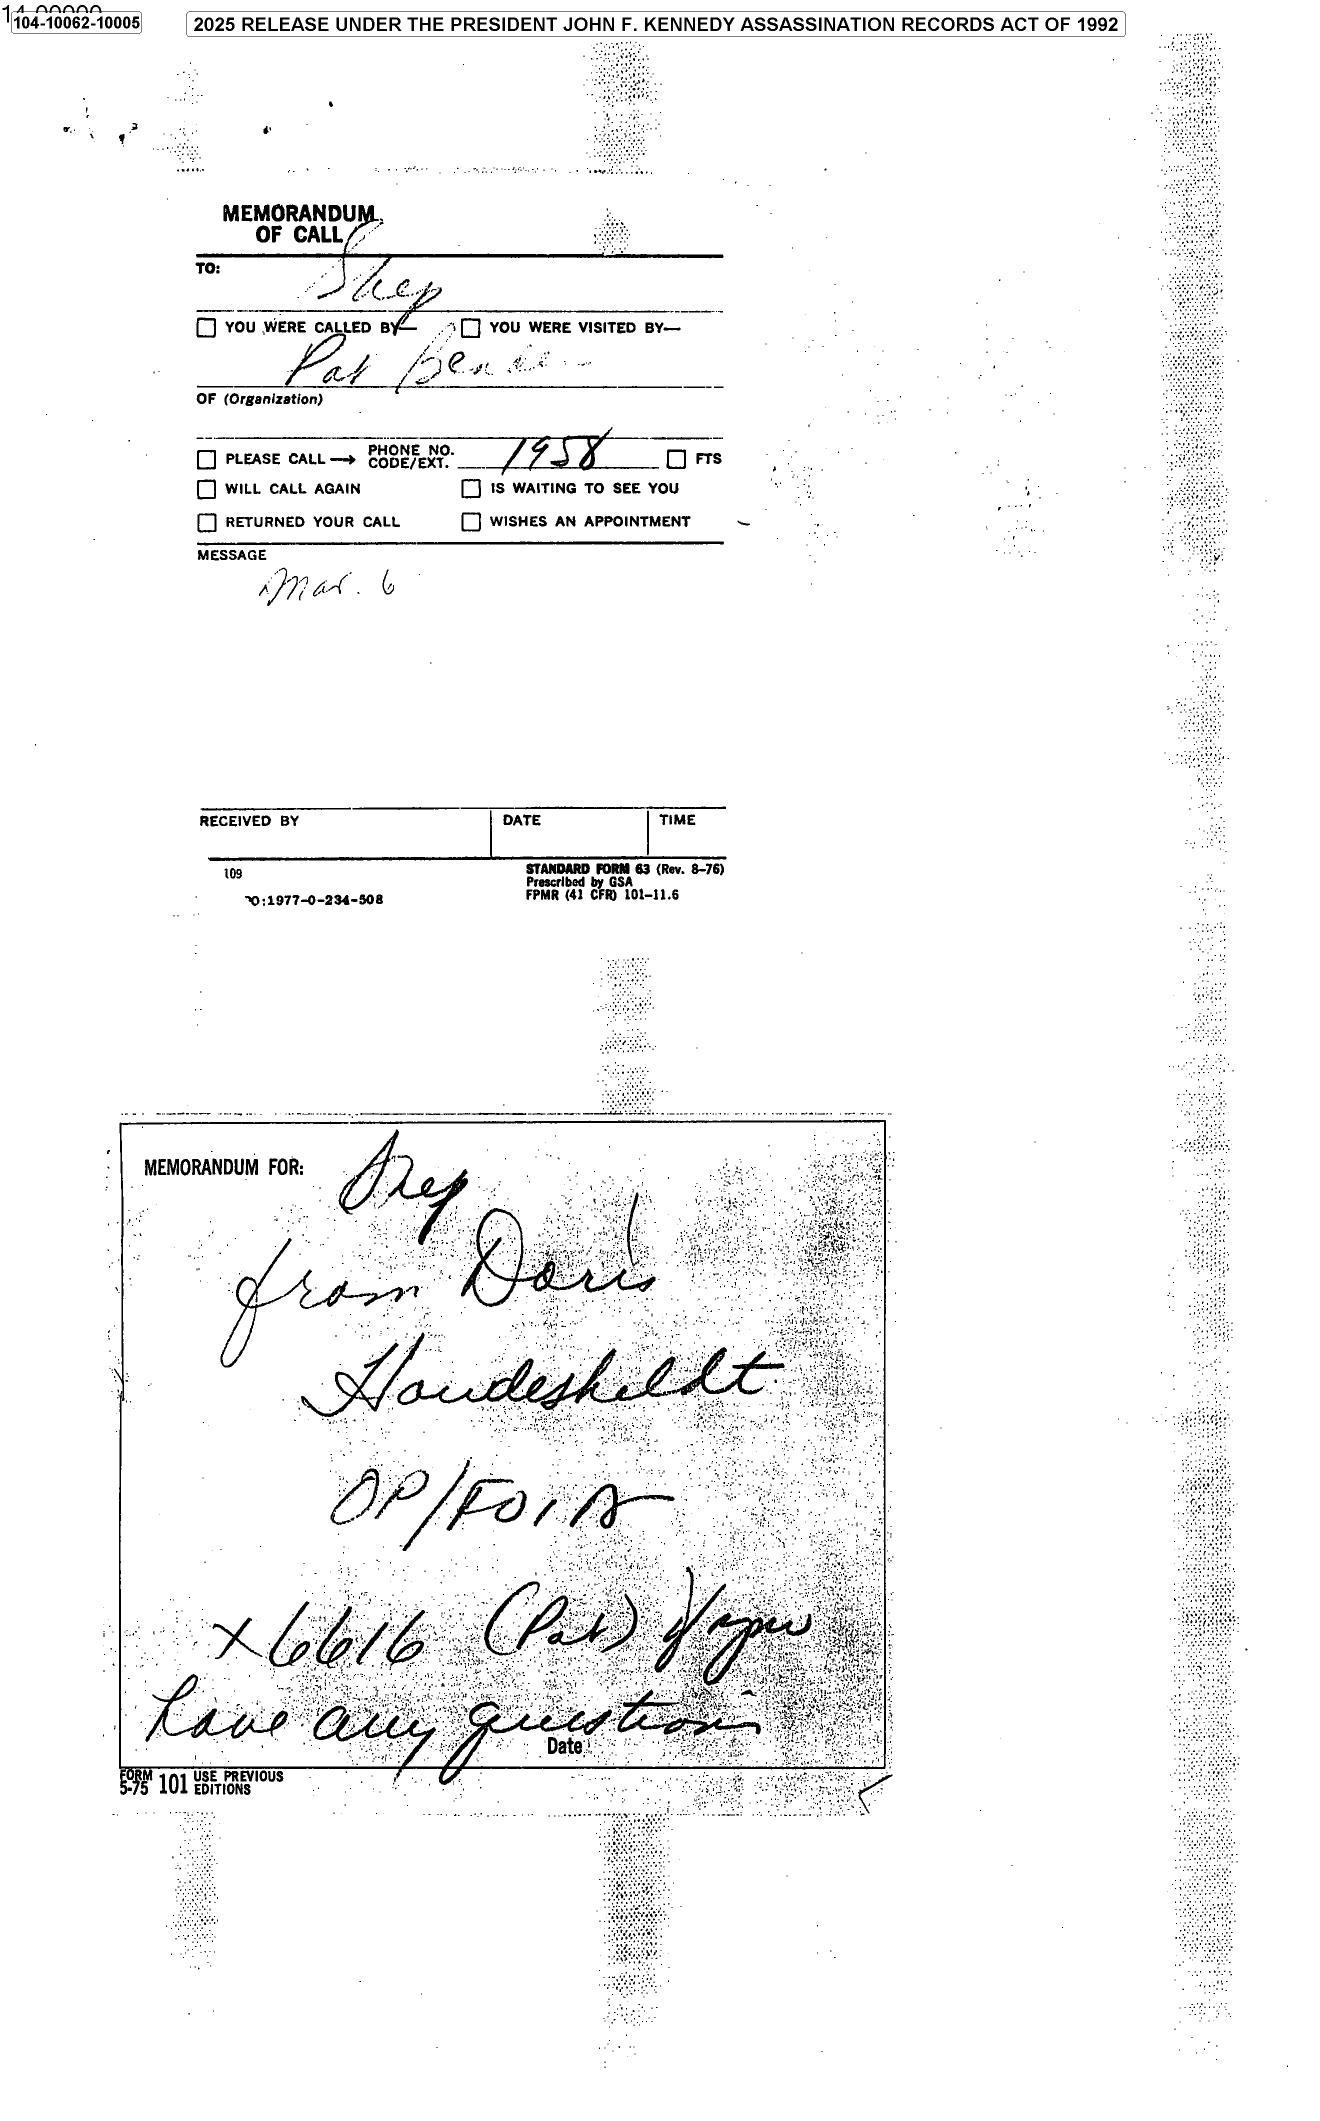 14-00000
104-10062-10005
2025 RELEASE UNDER THE PRESIDENT JOHN F. KENNEDY ASSASSINATION RECORDS ACT OF 1992
MEMORANDUM
OF CALL
TO:
Shep
☐ YOU WERE CALLED BY— ☐ YOU WERE VISITED BY—
Pat
OF (Organization)
☐ PLEASE CALL → PHONE NO. CODE/EXT. 1958 ☐ FTS
☐ WILL CALL AGAIN ☐ IS WAITING TO SEE YOU
☐ RETURNED YOUR CALL ☐ WISHES AN APPOINTMENT
MESSAGE
Mar. 6
RECEIVED BY DATE TIME
109 STANDARD FORM 63 (Rev. 8-76)
Prescribed by GSA
:1977-0-234-508 FPMR (41 CFR) 101-11.6
MEMORANDUM FOR:
Shep
from Doris
OP/FOIA
x6616 (Pat) if you
have any questions
Date
FORM 5-75 101 USE PREVIOUS EDITIONS